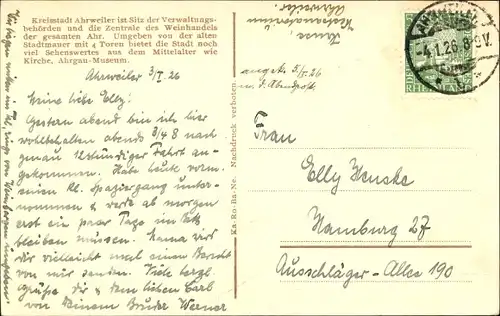 Kreisstadt Ahrweiler ist Sitz der Verwaltungs-
behörden und die Zentrale des Weinhandels
der gesamten Ahr. Umgeben von der alten
Stadtmauer mit 4 Toren bietet die Stadt noch
viel Sehenswertes aus dem Mittelalter wie
Kirche, Ahrgau-Museum.
Ahrweiler 3/I. 26
Meine liebe Elly!
Gestern abend bin ich hier
wohlbehalten abends 3/4 8 nach
genau 12stündiger Fahrt an-
gekommen. Habe heute vorm.
einen kl. Spaziergang unter-
nommen & werde ab morgen
erst ein paar Tage im Bett
bleiben müssen. Mama wird
dir vielleicht mal einen Bericht
von mir senden. Viele herzl.
Grüße dir & dem lieben Carl
von Deinem Bruder Werner
Ka-Ro-Ba-Ne. Nachdruck verboten.
Ahrweiler.
angek. 5/I. 26
m. d. Abendpost.
AHRWEILER
-4.1.26.8-9V.
Frau
Elly Henske
Hamburg 27
Ausschläger-Allee 190